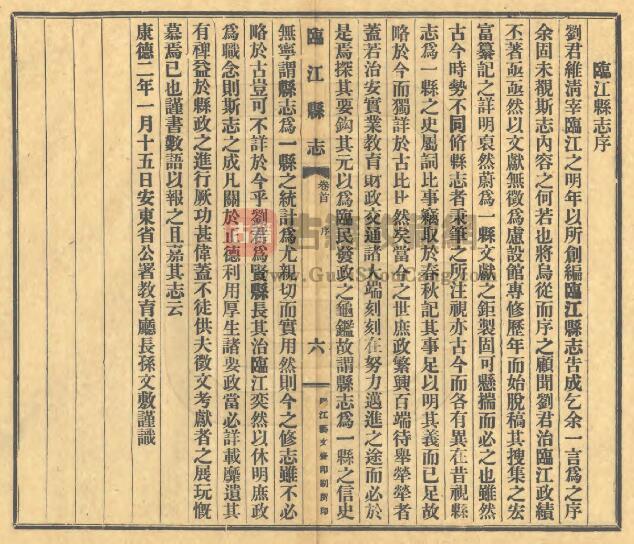 臨江縣志序
劉君維清宰臨江之明年以所創編臨江縣志告成乞余一言爲之序
余固未覩斯志內容之何若也將烏從而序之顧聞劉君治臨江政績
丕著亟亟然以文獻無徵爲慮設館專修歷年而始脫稿其搜集之宏
富纂記之詳明裒然蔚爲一縣文獻之鉅製固可懸揣而必之也雖然
古今時勢不同脩縣志者秉筆之所注視亦古今而各有異在昔視縣
志爲一縣之史屬詞比事竊取於春秋記其事足以明其義而已足故
略於今而獨詳於古比比然矣當今之世庶政繁興百端待舉犖犖者
蓋若治安實業教育財政交通諸大端刻刻在努力邁進之途而必於
是焉探其要鈎其元以爲臨民發政之龜鑑故謂縣志爲一縣之信史
臨江縣志
卷首
序
六
江縣文 印刷所印
無寧謂縣志爲一縣之統計爲尤親切而實用然則今之修志雖不必
略於古豈可不詳於今乎劉君爲賢縣長其治臨江奕然以休明庶政
爲職念則斯志之成凡關於正德利用厚生諸要政當必詳載靡遺其
有裨益於縣政之進行厥功甚偉蓋不徒供夫徵文考獻者之展玩慨
慕焉已也謹書數語以報之且嘉其志云
康德二年一月十五日安東省公署教育廳長孫文敷謹識